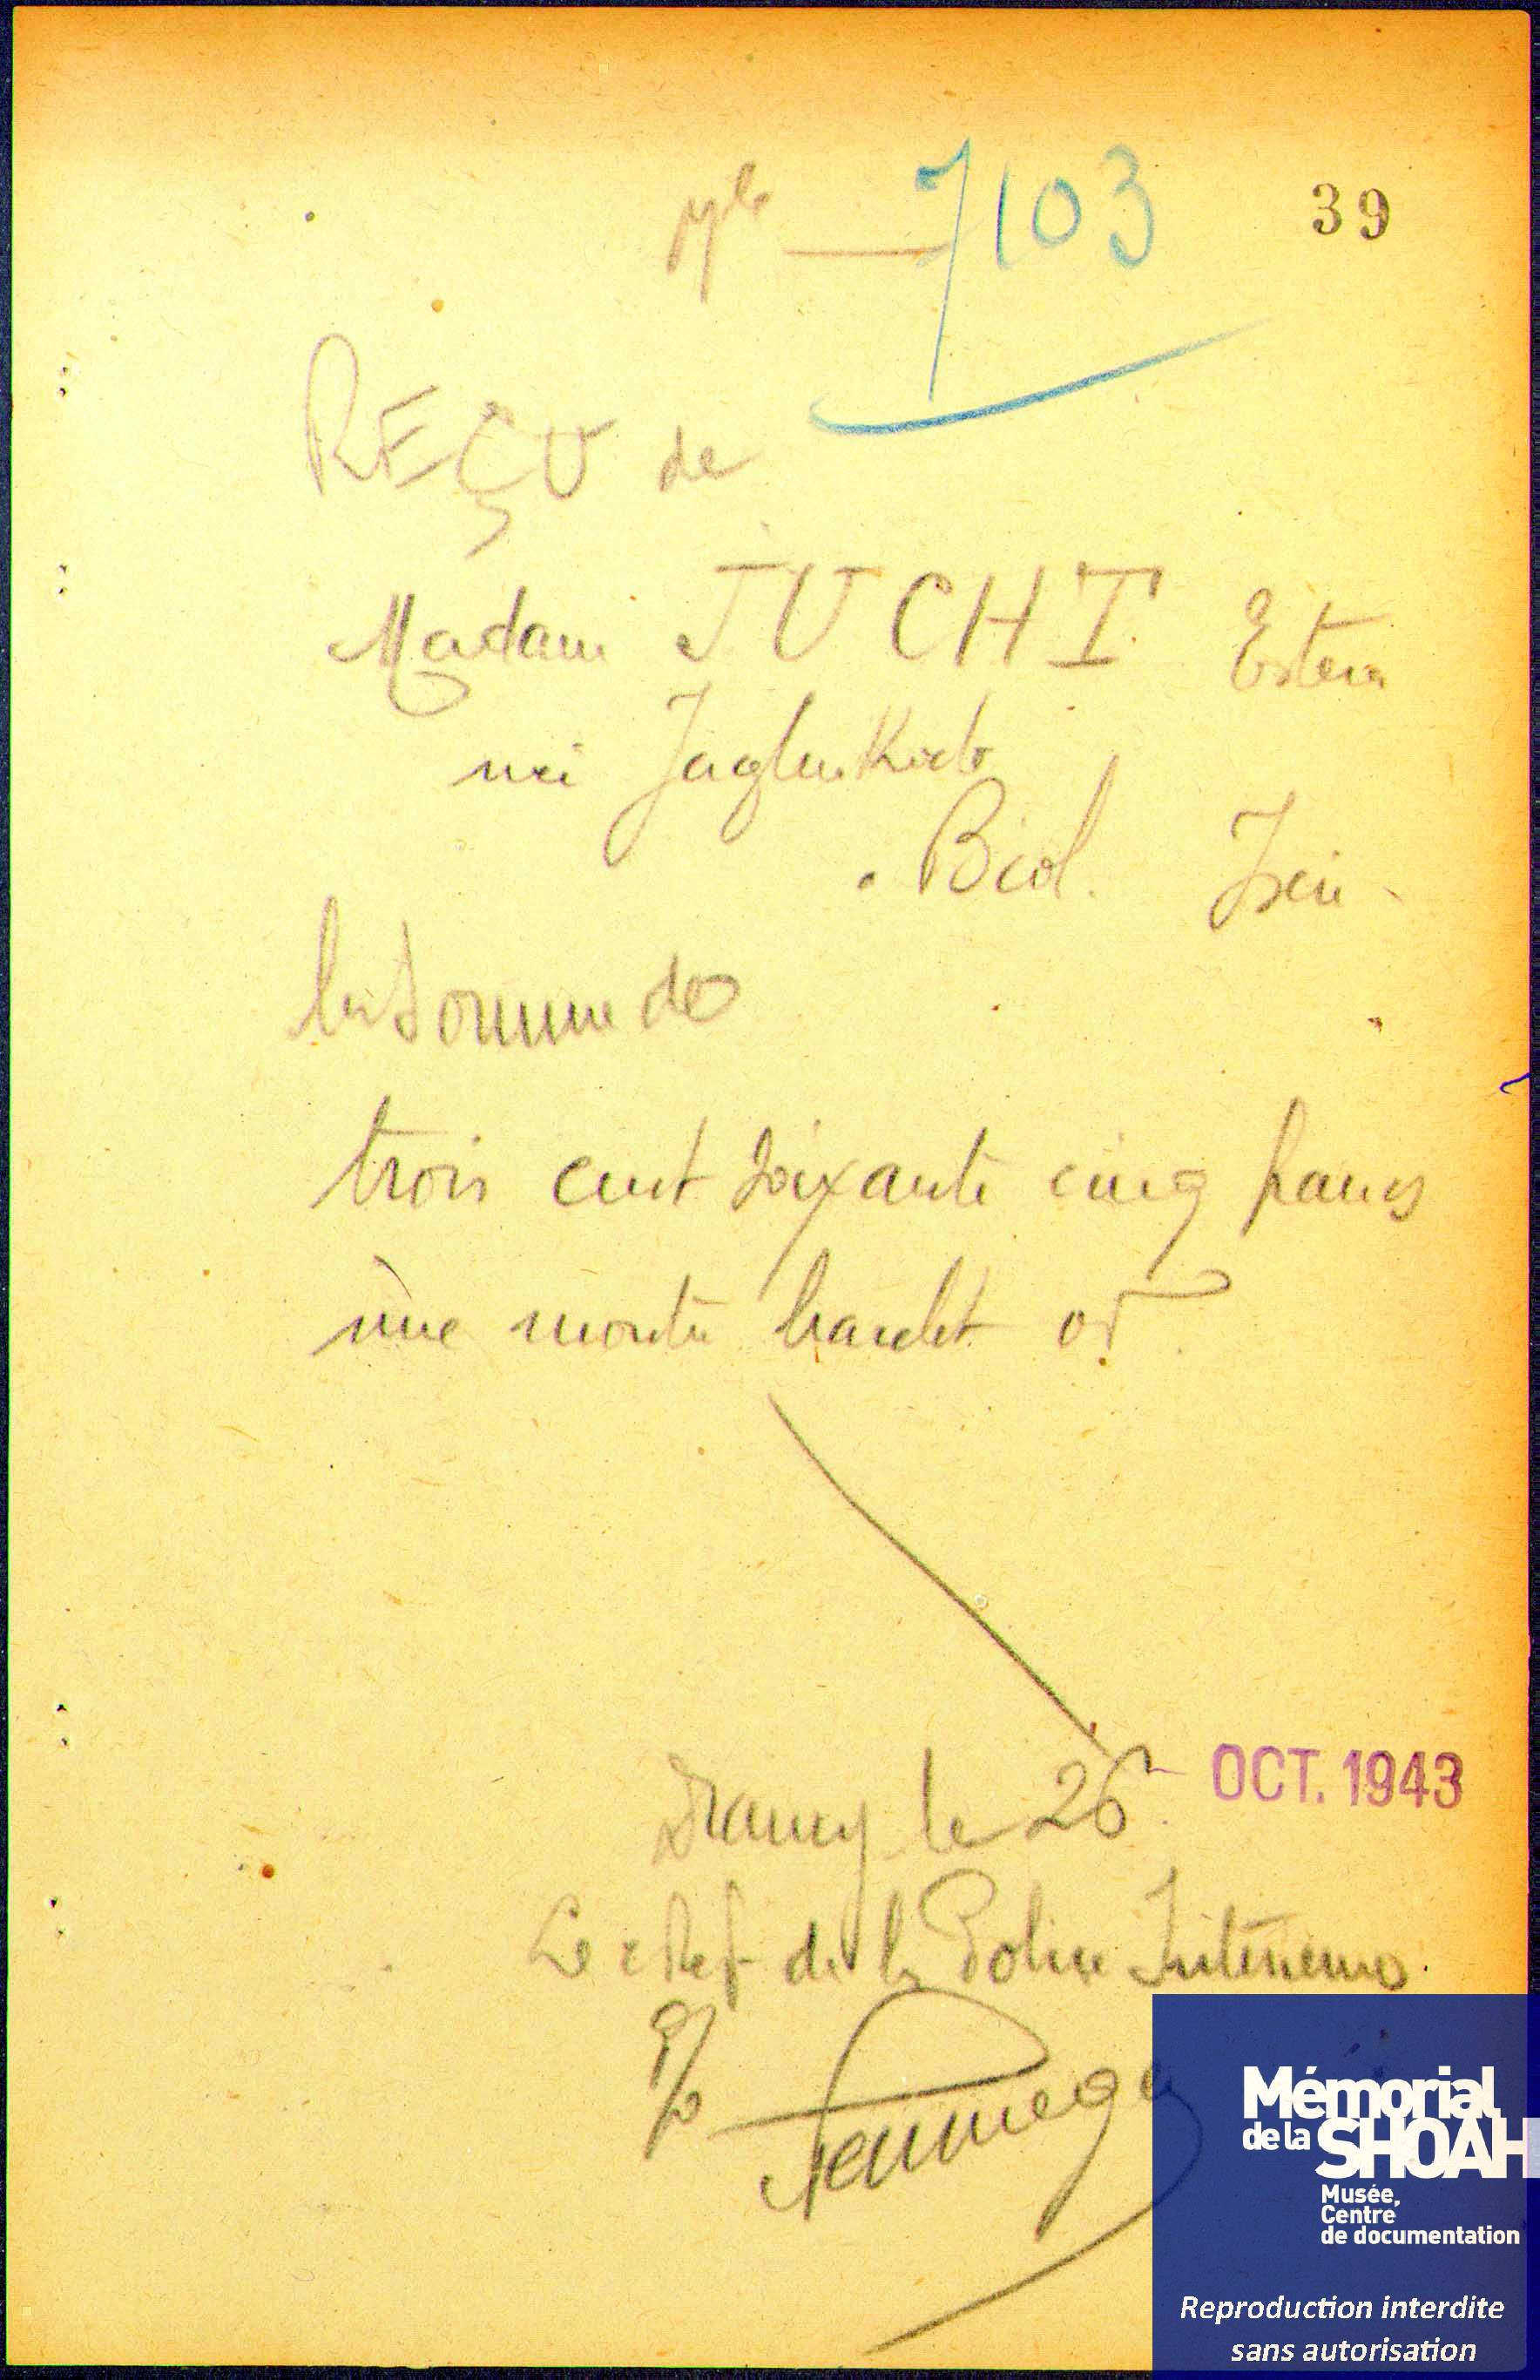 7103
39
REÇU de
Madame JUCHT Estera
née
Biol.
la Somme de
trois cent soixante cinq francs
une montre bracelet or
Drancy le 26 OCT. 1943
Le chef de la Police
P/o
Mémorial
de la SHOAH
Musée,
Centre
de documentation
Reproduction interdite
sans autorisation